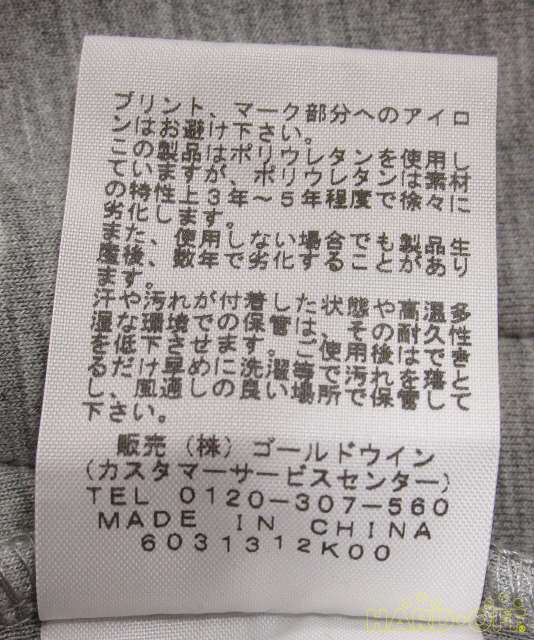 プリント、マーク部分へのアイロ
ンはお避け下さい。
この製品はポリウレタンを使用し
ていますが、ポリウレタンは素材
の特性上3年～5年程度で徐々に
劣化します。
また、使用しない場合でも製品生
産後、数年で劣化することがあり
ます。
汗や汚れが付着した状態や高温多
湿な環境での保管は、その耐久性
を低下させます。ご使用後はできと
るだけ早めに洗濯等で汚れを落
し、風通しの良い場所で保管して
下さい。
販売（株）ゴールドウイン
(カスタマーサービスセンター)
TEL 0120-307-560
MADE IN CHINA
6031312K00